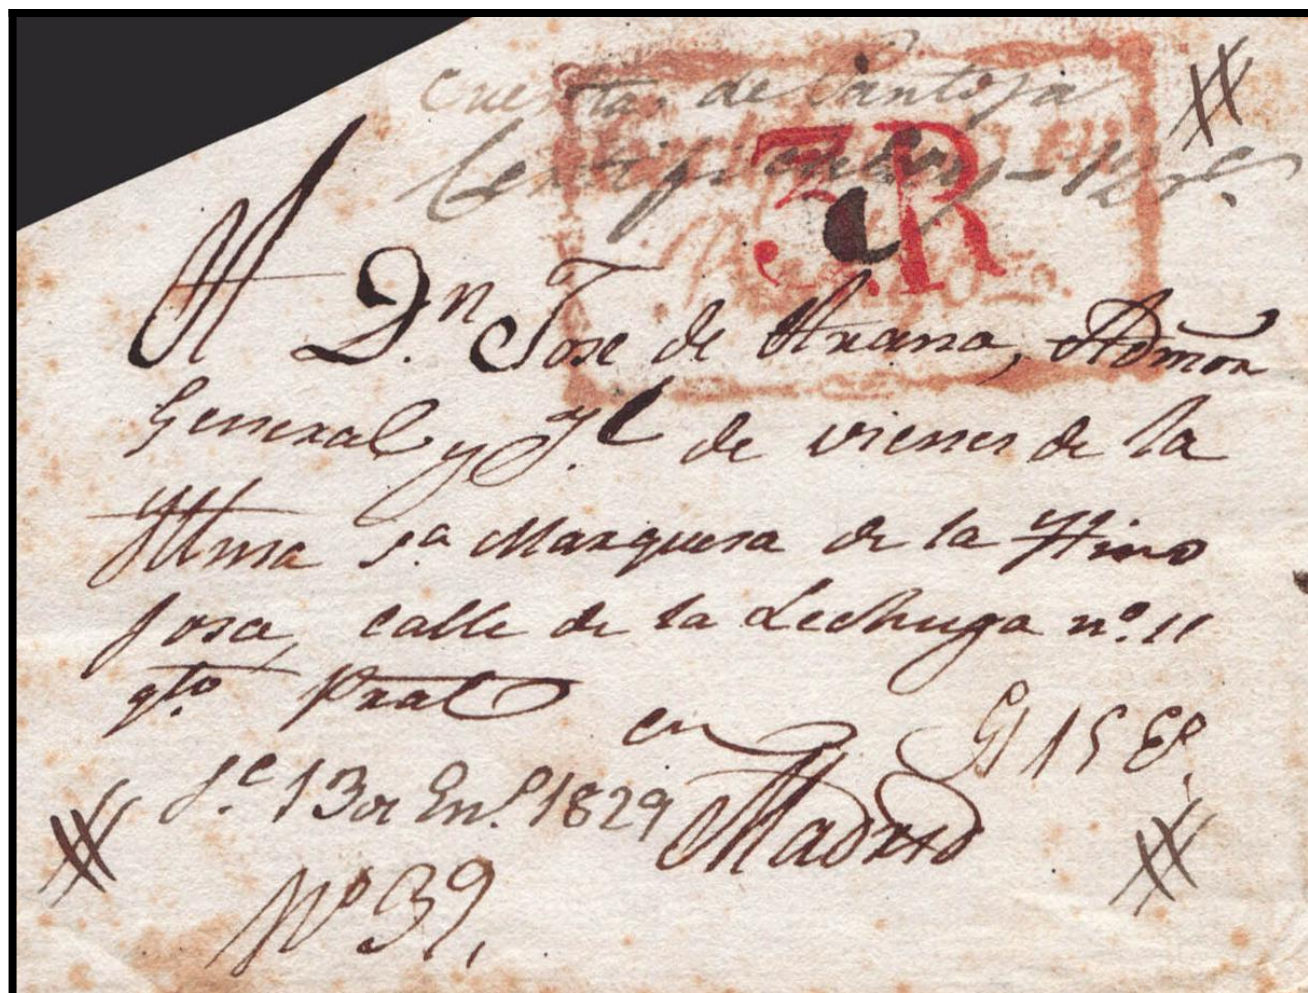 Cuentas de Pantoja
Certificada
3R
A Dn. Jose de Arana, Admor
General y Jl. de vienes de la
Yllma Sa Marquesa de la Hino
josa, calle de la Lechuga nº. 11
qto. Pral en
Madrid
13 de En.º 1829
15
Nº 39,